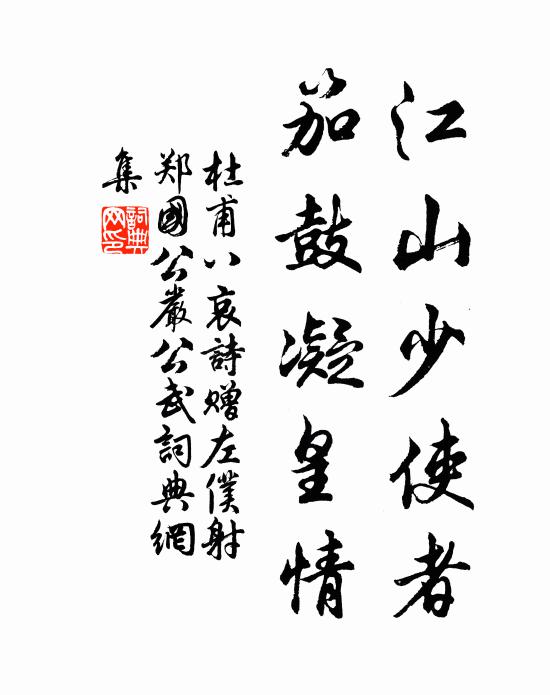 江山少使者
笳鼓凝皇情
杜甫八哀詩贈左僕射
郑國公嚴公武詞典網
集
詞典
网印